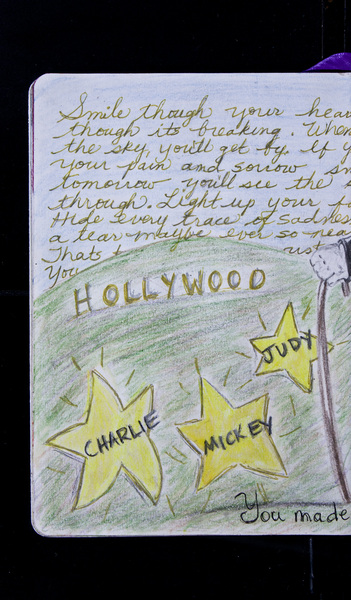 Smile though your hear
though its breaking. When
the sky, you'll get by. If y
your pain and sorrow sm
tomorrow you'll see the s
through. Light up your fa
Hide every trace of sadnes
a tear maybe ever so nea
Thats t ust
You
HOLLYWOOD
JUDY
CHARLIE
MICKEY
You made